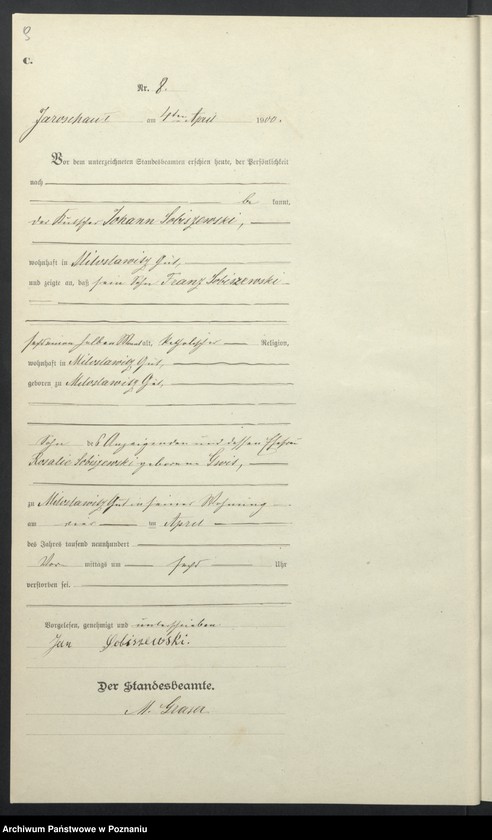 C.
Nr. 8.
am 4ten April 1900.
Vor dem unterzeichneten Standesbeamten erschien heute, der Persönlichkeit
nach
be kannt,
der Kutscher Johann Sobiszewski,
wohnhaft in Miloslawitz Gut,
und zeigte an, daß sein Sohn Franz Sobiszewski
halben alt, katholischer Religion,
wohnhaft in Miloslawitz Gut,
geboren zu Miloslawitz Gut,
Sohn des Anzeigenden und dessen Ehefrau
Rosalie Sobiszewski geborene
zu Miloslawitz Gut in seiner Wohnung
am vier im April
des Jahres tausend neunhundert
Vor mittags um sechs Uhr
verstorben sei.
Vorgelesen, genehmigt und unterschrieben
Jan Sobiszewski.
Der Standesbeamte.
M.
Archiwum Państwowe w Poznaniu